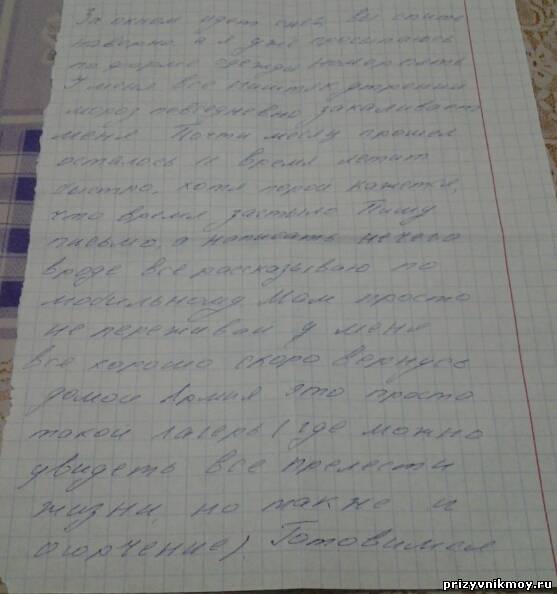 За окном идет снег Вы спите
наверно, а я уже просыпаюсь
по форме одежды номер пять
У меня все ништяк утренний
мороз повседневно закаливает
меня Почти месяц прошел
осталось 11 время летит
быстро, хотя порой кажется,
что время застыло Пишу
письмо, а написать нечего
вроде все рассказываю по
мобильному Мам просто
не переживай у меня
все хорошо скоро вернусь
домой Армия это просто
такой лагерь (где можно
увидеть все прелести
жизни, но также и
огорчение) Готовимся
prizyvnikmoy.ru